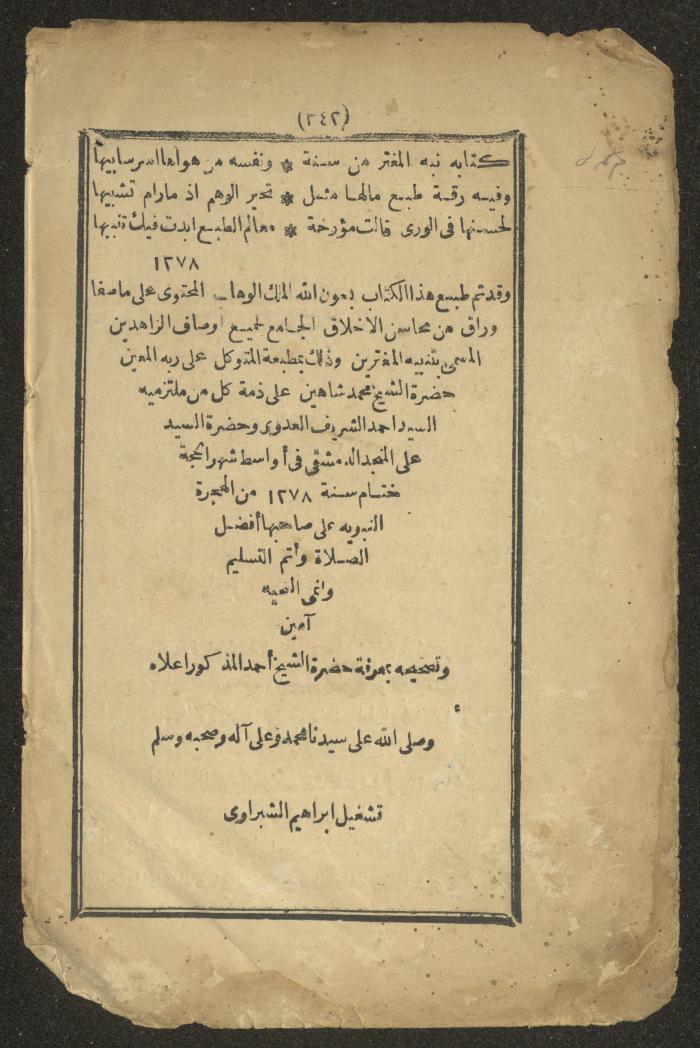 (٢٤٢)
كتابه نبه المغتر من سنة * ونفسه من هواها
وفيه رقة طبع مالها مثل * تحير الوهم اذ مارام تشبيها
لحسنها فى الورى قالت مؤرخة * معالم الطبع ابدت فيك تنبيها
١٢٧٨
وقد تم طبع هذا الكتاب بعون الله الملك الوهاب المحتوى على ماصفا
وراق من محاسن الاخلاق الجامع لجميع اوصاف الزاهدين
المسمى بتنبيه المغترين وذلك بمطبعة المتوكل على ربه المعين
حضرة الشيخ محمد شاهين على ذمة كل من ملتزميه
السيد احمد الشريف العدوى وحضرة السيد
على المنجد الدمشقى فى أواسط شهر الحجة
ختام سنة ١٢٧٨ من الهجرة
النبويه على صاحبها أفضل
الصلاة وأتم التسليم
وانمى التحيه
آمين
وتصحيحه بمعرفة حضرة الشيخ أحمد المذكور اعلاه
وصلى الله على سيدنا محمد وعلى آله وصحبه وسلم
تشغيل ابراهيم الشبراوى